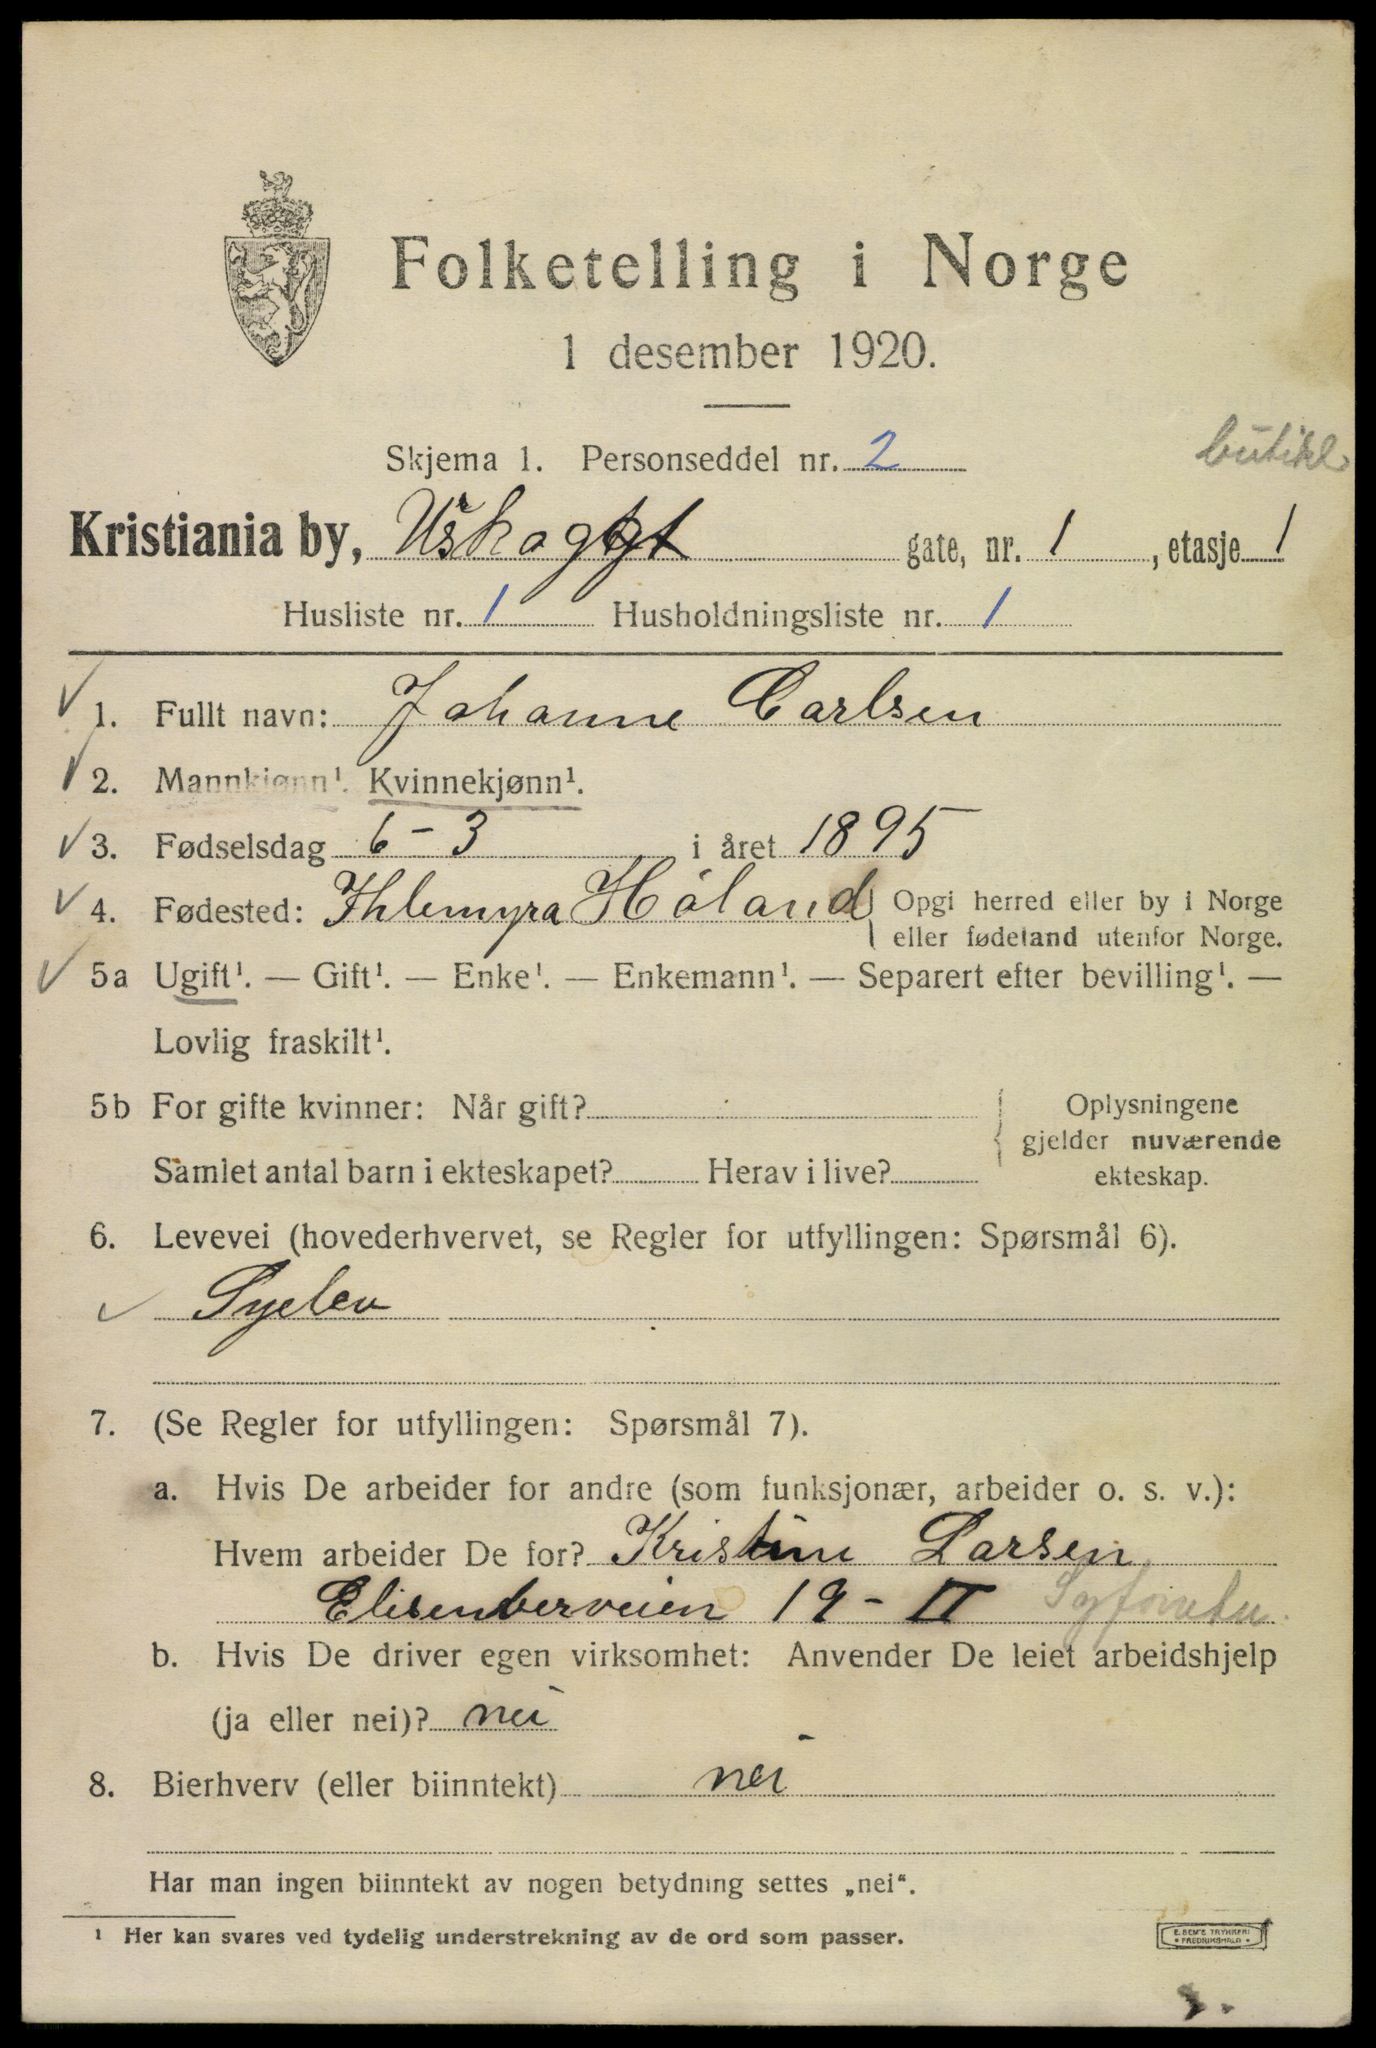 Folketelling i Norge
1 desember 1920.
Skjema 1. Personseddel nr. 2
butikk
Kristiania by, gate, nr. 1, etasje 1
Husliste nr. 1 Husholdningsliste nr. 1
1. Fullt navn: Johanne Carlsen
2. Mannkjønn¹. Kvinnekjønn¹.
3. Fødselsdag 6-3 i året 1895
4. Fødested: Ihlemyra Höland Opgi herred eller by i Norge
eller fødeland utenfor Norge.
5a Ugift¹. — Gift¹. — Enke¹. — Enkemann¹. — Separert efter bevilling¹. —
Lovlig fraskilt¹.
5b For gifte kvinner: Når gift?
Samlet antal barn i ekteskapet? Herav i live?
Oplysningene
gjelder nuværende
ekteskap.
6. Levevei (hovederhvervet, se Regler for utfyllingen: Spørsmål 6).
Syelev
7. (Se Regler for utfyllingen: Spørsmål 7).
a. Hvis De arbeider for andre (som funksjonær, arbeider o. s. v.):
Hvem arbeider De for? Kristine Larsen
Elisenberveien 19 - II
b. Hvis De driver egen virksomhet: Anvender De leiet arbeidshjelp
(ja eller nei)? nei
8. Bierhverv (eller biinntekt) nei
Har man ingen biinntekt av nogen betydning settes „nei“.
¹ Her kan svares ved tydelig understrekning av de ord som passer.
E. SEM'S TRYKKERI
FREDRIKSHALD